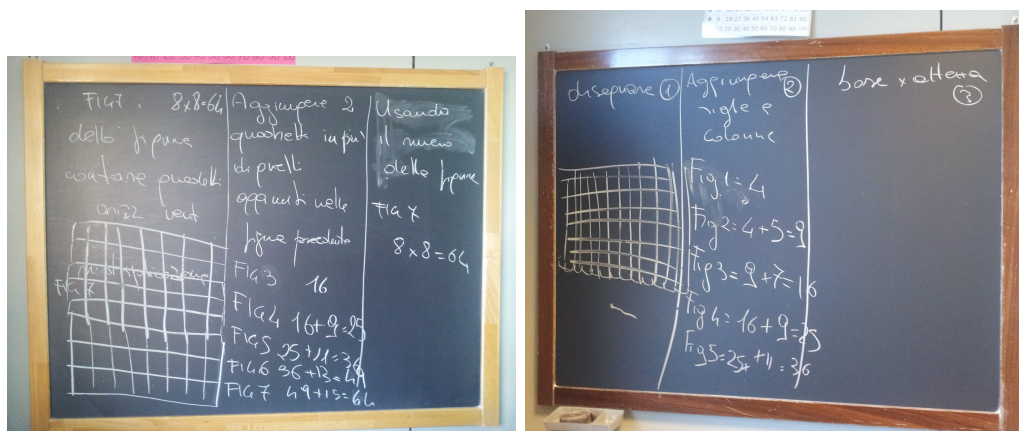 FIG 7. 8x8=64
della figura
contare quadretti
orizz vert
FIG 7
Aggiungere 2
quadretti in più
di quelli
aggiunti nella
figura precedente
FIG 3
16
FIG 4 16+9=25
FIG 5 25+11=36
FIG 6 36+13=49
FIG 7 49+15=64
Usando
il numero
della figura
FIG 7
8x8=64
9 18 27 36 45 54 63 72 81 90
10 20 30 40 50 60 70 80 90 100
disegnare 1
Aggiungere 2
righe e
colonne
Fig 1 = 4
Fig 2 = 4+5=9
Fig 3 = 9+7=16
Fig 4 = 16+9=25
Fig 5 = 25+11=36
base x altezza
3